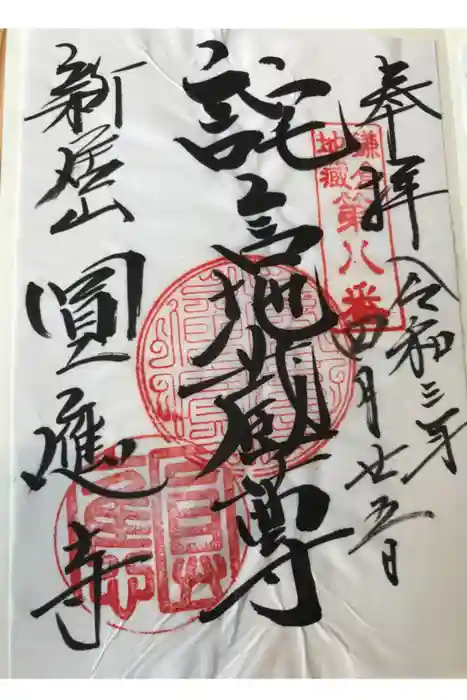 奉拝
令和三年
四月廿五日
鎌倉
地藏
第八番
詫言地蔵尊
新居山 圓應寺